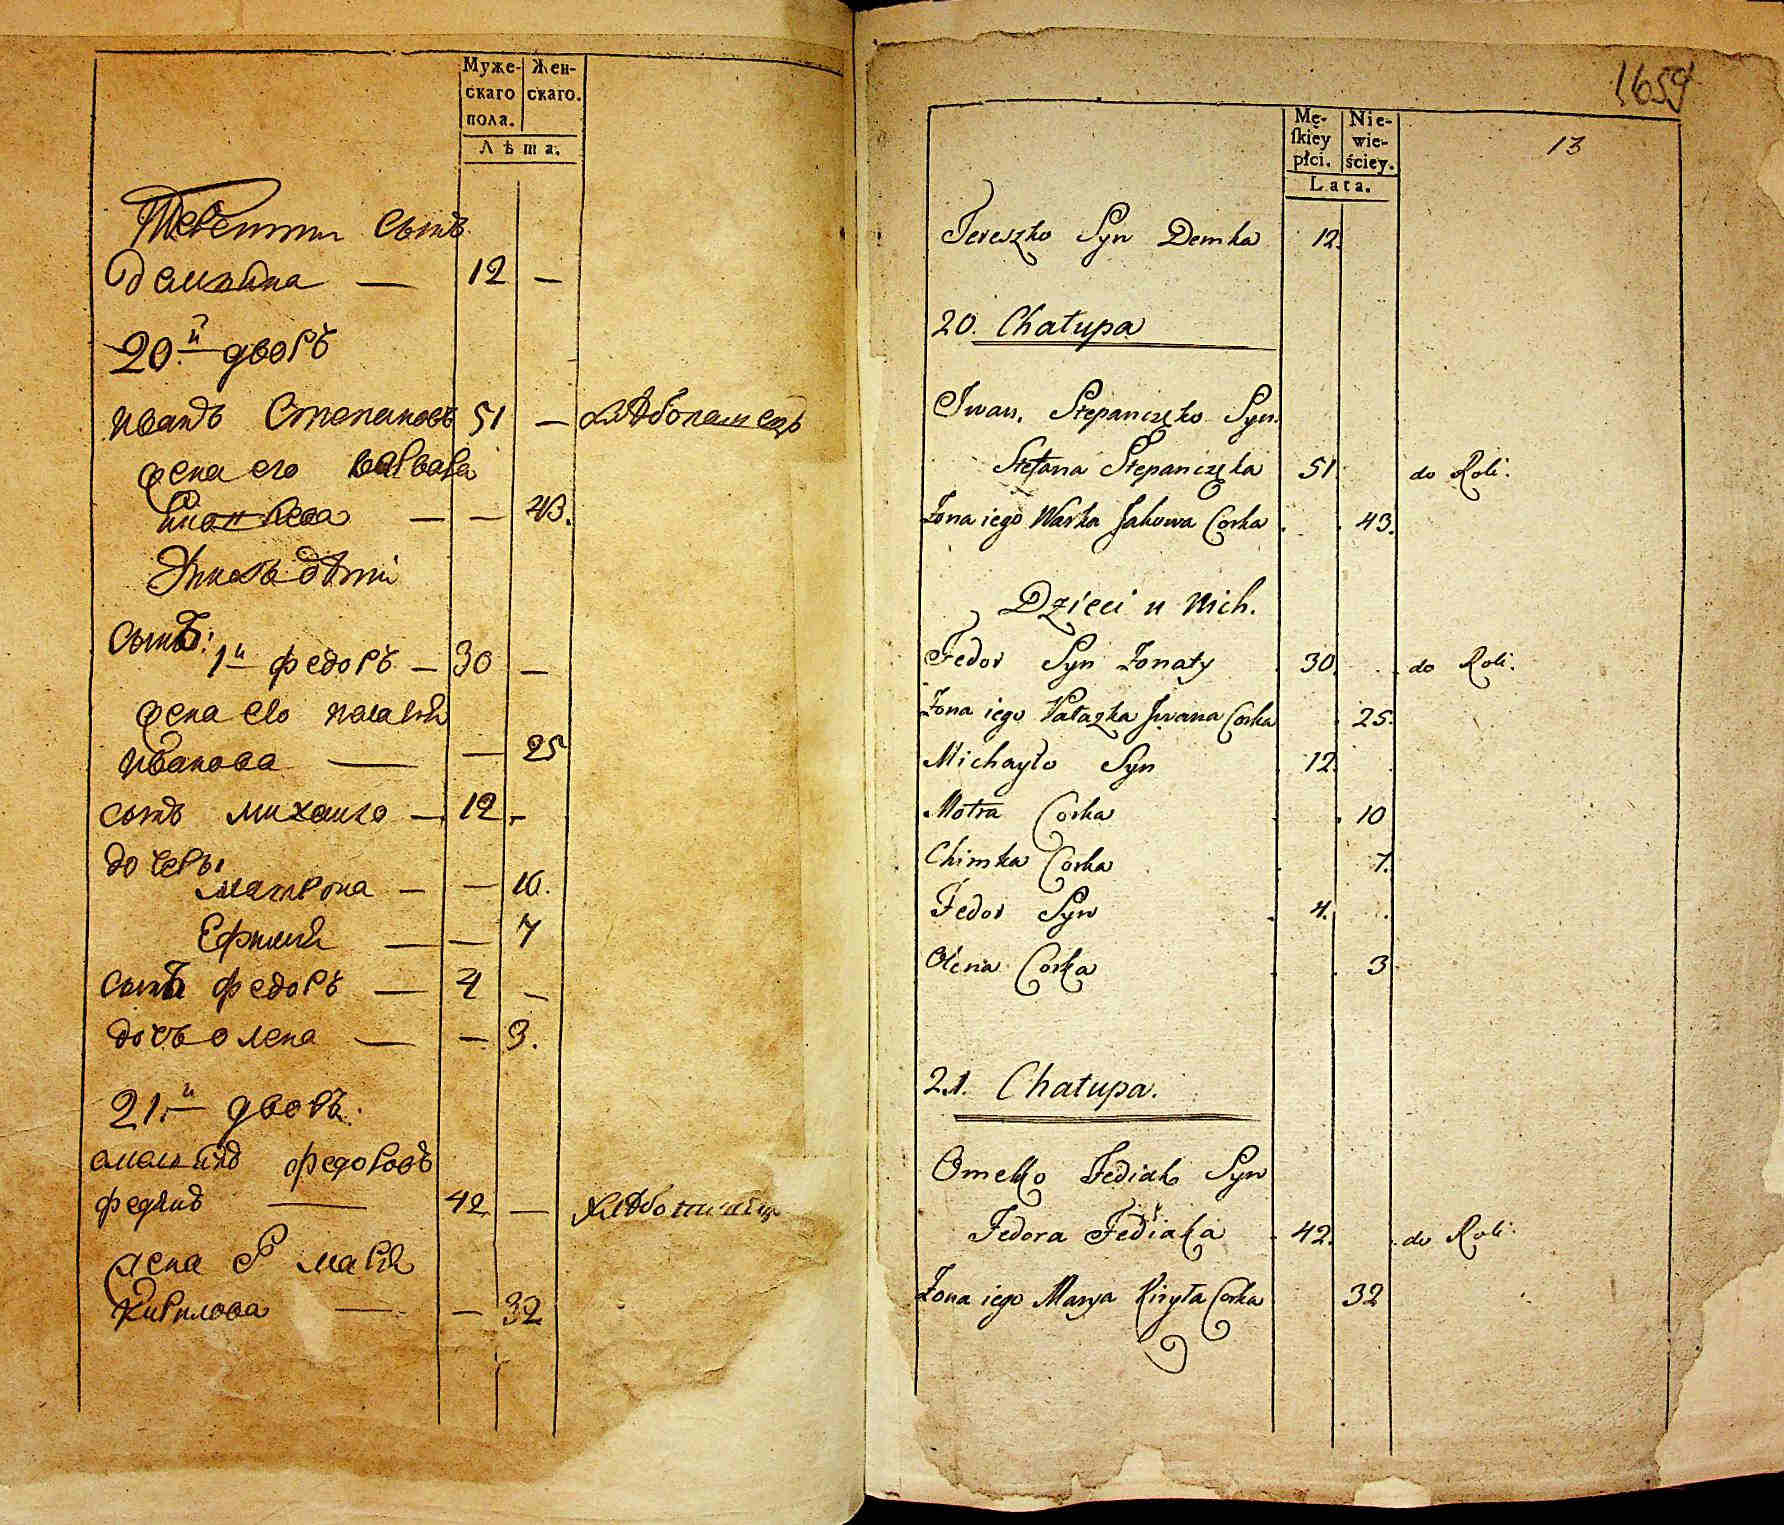 Муже- Жен-
скаго скаго.
пола.
Лѣта.
сынъ
12 —
20.й дворъ
иванъ Степановъ 51 — хлѣбопашецъ
жена его варвара
— — 43.
дѣти
сынъ:
1й федоръ — 30 —
жена его
иванова — — 25
сынъ михаило — 12 —
дочери
матрона — — 10.
Ефимия — — 7
сынъ федоръ — 4 —
дочь олена — — 3.
21.й дворъ.
федоровъ
— 42 — хлѣбопашецъ
жена
кирилова — — 32
1659
13
Mę- Nie-
ſkiey wie-
płci. ściey.
Lata.
Tereszko Syn Demka 12.
20. Chałupa
Iwan. Stepanczęko Syn
Stefana Stepanczęka 51. do Roli.
Żona iego Warka Jakowa Corka 43.
Dzieci u nich.
Fedor Syn Żonaty 30. do Roli.
Żona iego Pałazka Jwana Corka 25.
Michayło Syn 12.
Motra Corka 10
Chimka Corka 7.
Fedor Syn 4.
Olena Corka 3
21. Chałupa.
Omelko Fediak Syn
Fedora Fediaka 42. do Roli.
Żona iego Marya Kiryła Corka 32